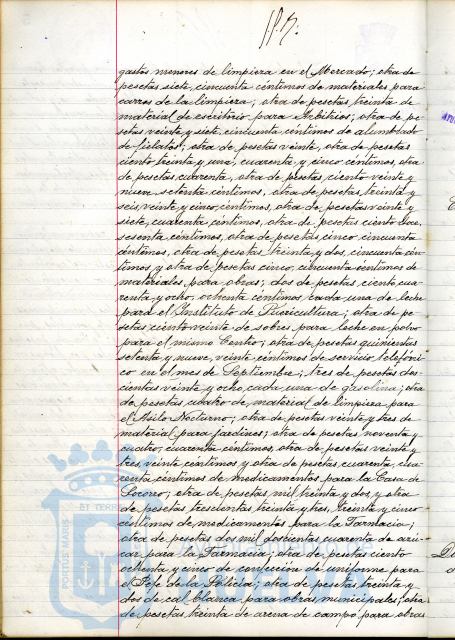 gastos menores de limpieza en el Mercado; otra de
pesetas siete, cincuenta centimos de materiales para
carros de la limpieza; otra de pesetas treinta de
material de escritorio para Arbitrios; otra de pe-
setas veinte y siete, cincuenta céntimos de alumbrado
de fielatos; otra de pesetas veinte, otra de pesetas
ciento treinta y una, cuarenta y cinco céntimos, otra
de pesetas cuarenta, otra de pesetas ciento veinte y
nueve, setenta centimos, otra de pesetas treinta y
seis, veinte y cinco centimos, otra de pesetas veinte y
siete, cuarenta centimos, otra de pesetas ciento doce,
sesenta céntimos, otra de pesetas cinco, cincuenta
centimos, otra de pesetas treinta y dos, cincuenta cén-
timos y otra de pesetas cinco, cincuenta céntimos de
materiales para obras; dos de pesetas ciento cua-
renta y ocho, ochenta centimos cada una de leche
para el Instituto de Puericultura; otra de pe-
setas ciento veinte de sobres para leche en polvo
para el mismo Centro; otra de pesetas quinientas
setenta y nueve, veinte céntimos de servicio telefóni-
co en el mes de Septiembre; tres de pesetas dos-
cientas veinte y ocho, cada una de gasolina; otra
de pesetas cuatro de material de limpieza para
el Asilo Nocturno; otra de pesetas veinte y tres de
material para jardines; otra de pesetas noventa y
cuatro, cuarenta céntimos, otra de pesetas veinte y
tres, veinte céntimos y otra de pesetas cuarenta, cua-
renta céntimos de medicamentos para la Casa de
Socorro; otra de pesetas mil treinta y dos y otra
de pesetas trescientas treinta y tres, treinta y cinco
centimos de medicamentos para la Farmacia;
otra de pesetas dos mil doscientas cuarenta de azú-
car para la Farmacia; otra de pesetas ciento
ochenta y cinco de confección de uniforme para
el Jefe de la Policía; otra de pesetas treinta y
dos de cal blanca para obras municipales; otra
de pesetas treinta de arena de campo para obras
PORTUS MARIS
ET TERR